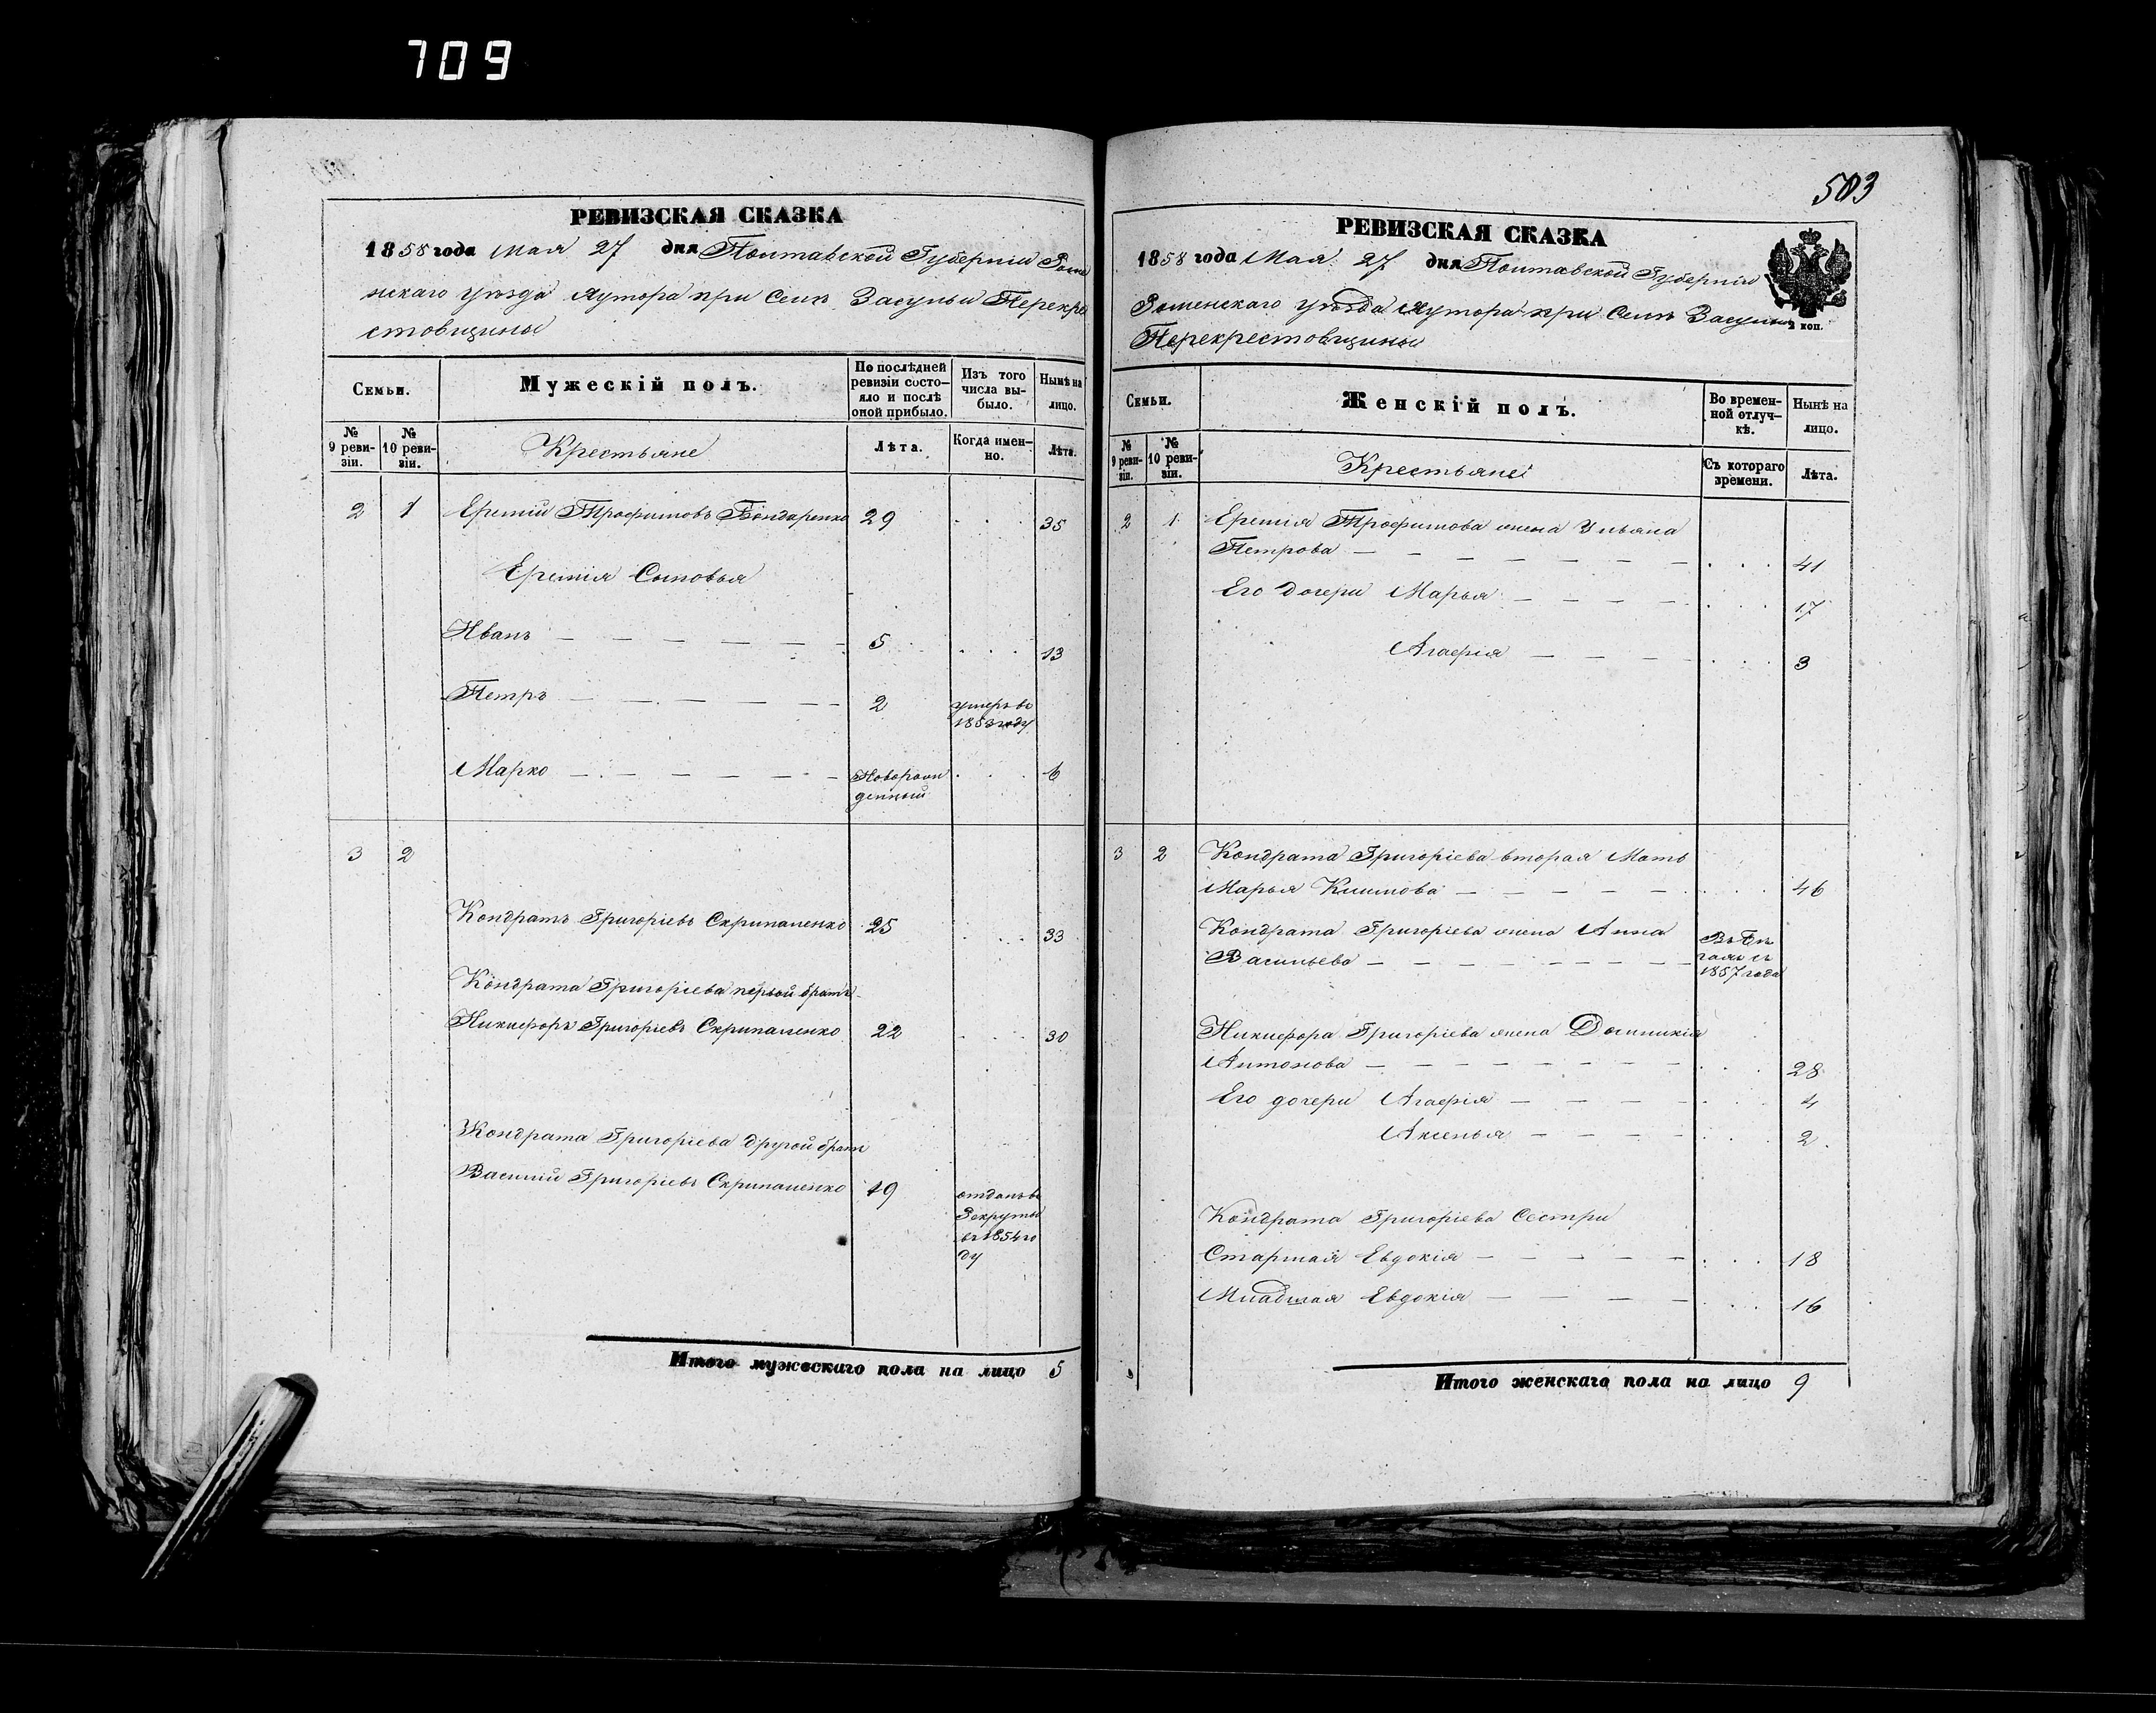 709
РЕВИЗСКАЯ СКАЗКА
1858 года Мая 27 дня Полтавской Губерніи Роме
нскаго уѣзда Хутора при Селѣ Засульи Перекре
стовщины
Семьи.
Мужескій полъ.
По послѣдней ревизіи состо-
яло и послѣ оной прибыло.
Изъ того числа вы-
было.
Нынѣ на лицо.
№ 9 реви-
зіи.
№ 10 реви-
зіи.
Крестьяне
Лѣта.
Когда имен-
но.
Лѣта.
2 1 Еремій Трофимовъ Бондаренко 29 . . . 35
Еремія Сыновья
Иванъ — — — — — — 5 . . . 13
Петръ — — — — — — 2 умеръ въ
1853 году
Марко — — — — — — Новорож
денный . . . 6
3 2
Кондратъ Григоріевъ Скрипаленко 25 . . . 33
Кондрата Григоріева первой братъ
Никифоръ Григоріевъ Скрипаленко 22 . . . 30
Кондрата Григоріева другой братъ
Василій Григоріевъ Скрипаленко 19 отданъ въ
Рекруты
въ 1854 го
ду
Итого мужескаго пола на лицо 5
503
РЕВИЗСКАЯ СКАЗКА
1858 года Мая 27 дня Полтавской Губерніи
Роменскаго уѣзда Хутора при Селѣ Засульи
Перекрестовщины
коп.
Семьи.
Женскій полъ.
Во времен-
ной отлуч-
кѣ.
Нынѣ на лицо.
№ 9 реви-
зіи.
№ 10 реви-
зіи.
Крестьяне
Съ котораго времени.
Лѣта.
2 1 Еремія Трофимова жена Ульяна
Петрова — — — — — — . . . 41
Его дочери Марья — — — — . . . 17
Агафія — — — — . . . 3
3 2 Кондрата Григоріева вторая Мать
Марья Климова — — — — — . . . 46
Кондрата Григоріева жена Анна
Васильева — — — — — — —
1857 года
Никифора Григоріева жена Домникія
Антонова — — — — — — — . . . 28
Его дочери Агафія — — — — . . . 4
Аксенья — — — — . . . 2.
Кондрата Григоріева Сестри
Старшая Евдокія — — — — — . . . 18
Младшая Евдокія — — — — . . . 16
Итого женскаго пола на лицо 9